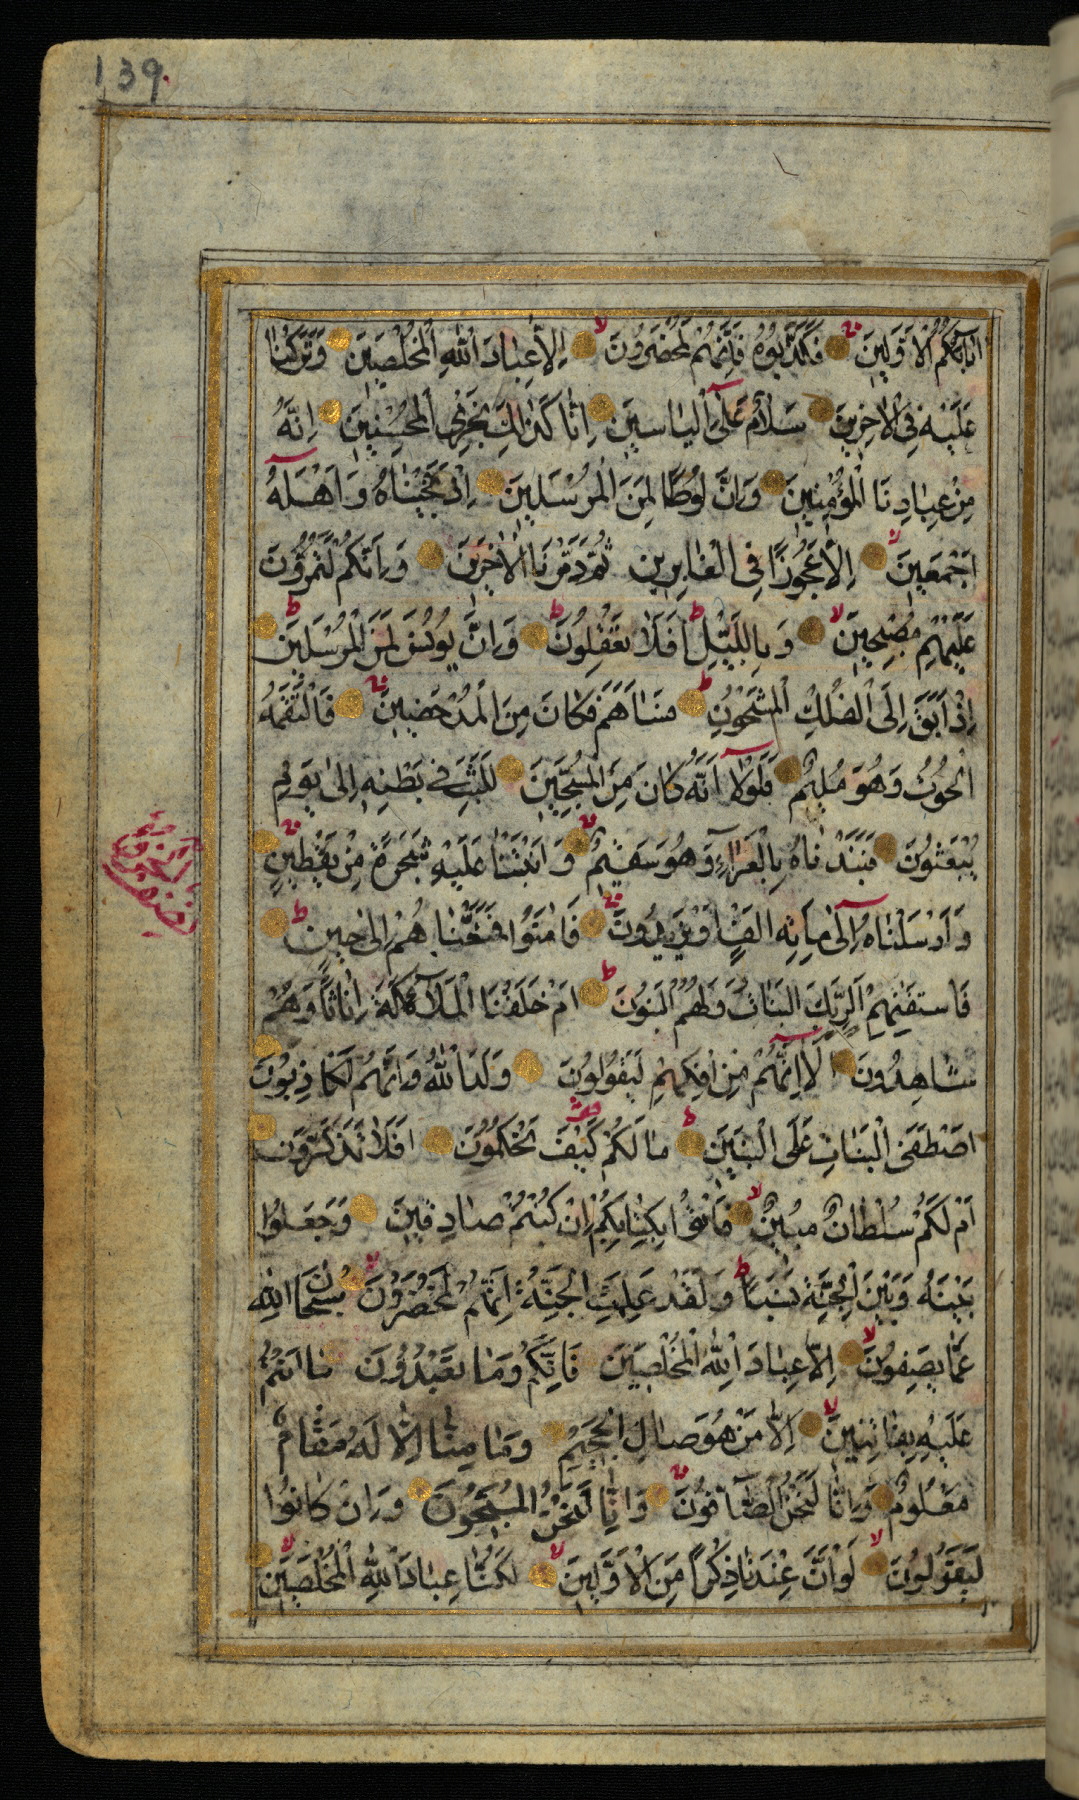 139
اٰبَآئِكُمُ الْاَوَّلِينَ فَكَذَّبُوهُ فَاِنَّهُمْ لَمُحْضَرُونَ اِلَّا عِبَادَ اللّٰهِ الْمُخْلَصِينَ وَتَرَكْنَا
عَلَيْهِ فِي الْاٰخِرِينَ سَلَامٌ عَلٰٓى اِلْيَاسِينَ اِنَّا كَذٰلِكَ نَجْزِي الْمُحْسِنِينَ اِنَّهُ
مِنْ عِبَادِنَا الْمُؤْمِنِينَ وَاِنَّ لُوطًا لَمِنَ الْمُرْسَلِينَ اِذْ نَجَّيْنَاهُ وَاَهْلَهُٓ
اَجْمَعِينَ اِلَّا عَجُوزًا فِي الْغَابِرِينَ ثُمَّ دَمَّرْنَا الْاٰخَرِينَ وَاِنَّكُمْ لَتَمُرُّونَ
عَلَيْهِمْ مُصْبِحِينَ وَبِاللَّيْلِ اَفَلَا تَعْقِلُونَ وَاِنَّ يُونُسَ لَمِنَ الْمُرْسَلِينَ
اِذْ اَبَقَ اِلَى الْفُلْكِ الْمَشْحُونِ فَسَاهَمَ فَكَانَ مِنَ الْمُدْحَضِينَ فَالْتَقَمَهُ
الْحُوتُ وَهُوَ مُلِيمٌ فَلَوْلَآ اَنَّهُ كَانَ مِنَ الْمُسَبِّحِينَ لَلَبِثَ فِي بَطْنِهِ اِلٰى يَوْمِ
يُبْعَثُونَ فَنَبَذْنَاهُ بِالْعَرَآءِ وَهُوَ سَقِيمٌ وَاَنْبَتْنَا عَلَيْهِ شَجَرَةً مِنْ يَقْطِينٍ
وَاَرْسَلْنَاهُ اِلٰى مِائَةِ اَلْفٍ اَوْ يَزِيدُونَ فَاٰمَنُوا فَمَتَّعْنَاهُمْ اِلٰى حِينٍ
فَاسْتَفْتِهِمْ اَلِرَبِّكَ الْبَنَاتُ وَلَهُمُ الْبَنُونَ اَمْ خَلَقْنَا الْمَلَآئِكَةَ اِنَاثًا وَهُمْ
شَاهِدُونَ اَلَآ اِنَّهُمْ مِنْ اِفْكِهِمْ لَيَقُولُونَ وَلَدَ اللّٰهُ وَاِنَّهُمْ لَكَاذِبُونَ
اَصْطَفَى الْبَنَاتِ عَلَى الْبَنِينَ مَا لَكُمْ كَيْفَ تَحْكُمُونَ اَفَلَا تَذَكَّرُونَ
اَمْ لَكُمْ سُلْطَانٌ مُبِينٌ فَأْتُوا بِكِتَابِكُمْ اِنْ كُنْتُمْ صَادِقِينَ وَجَعَلُوا
بَيْنَهُ وَبَيْنَ الْجِنَّةِ نَسَبًا وَلَقَدْ عَلِمَتِ الْجِنَّةُ اِنَّهُمْ لَمُحْضَرُونَ سُبْحَانَ اللّٰهِ
عَمَّا يَصِفُونَ اِلَّا عِبَادَ اللّٰهِ الْمُخْلَصِينَ فَاِنَّكُمْ وَمَا تَعْبُدُونَ مَا اَنْتُمْ
عَلَيْهِ بِفَاتِنِينَ اِلَّا مَنْ هُوَ صَالِ الْجَحِيمِ وَمَا مِنَّا اِلَّا لَهُ مَقَامٌ
مَعْلُومٌ وَاِنَّا لَنَحْنُ الصَّآفُّونَ وَاِنَّا لَنَحْنُ الْمُسَبِّحُونَ وَاِنْ كَانُوا
لَيَقُولُونَ لَوْ اَنَّ عِنْدَنَا ذِكْرًا مِنَ الْاَوَّلِينَ لَكُنَّا عِبَادَ اللّٰهِ الْمُخْلَصِينَ